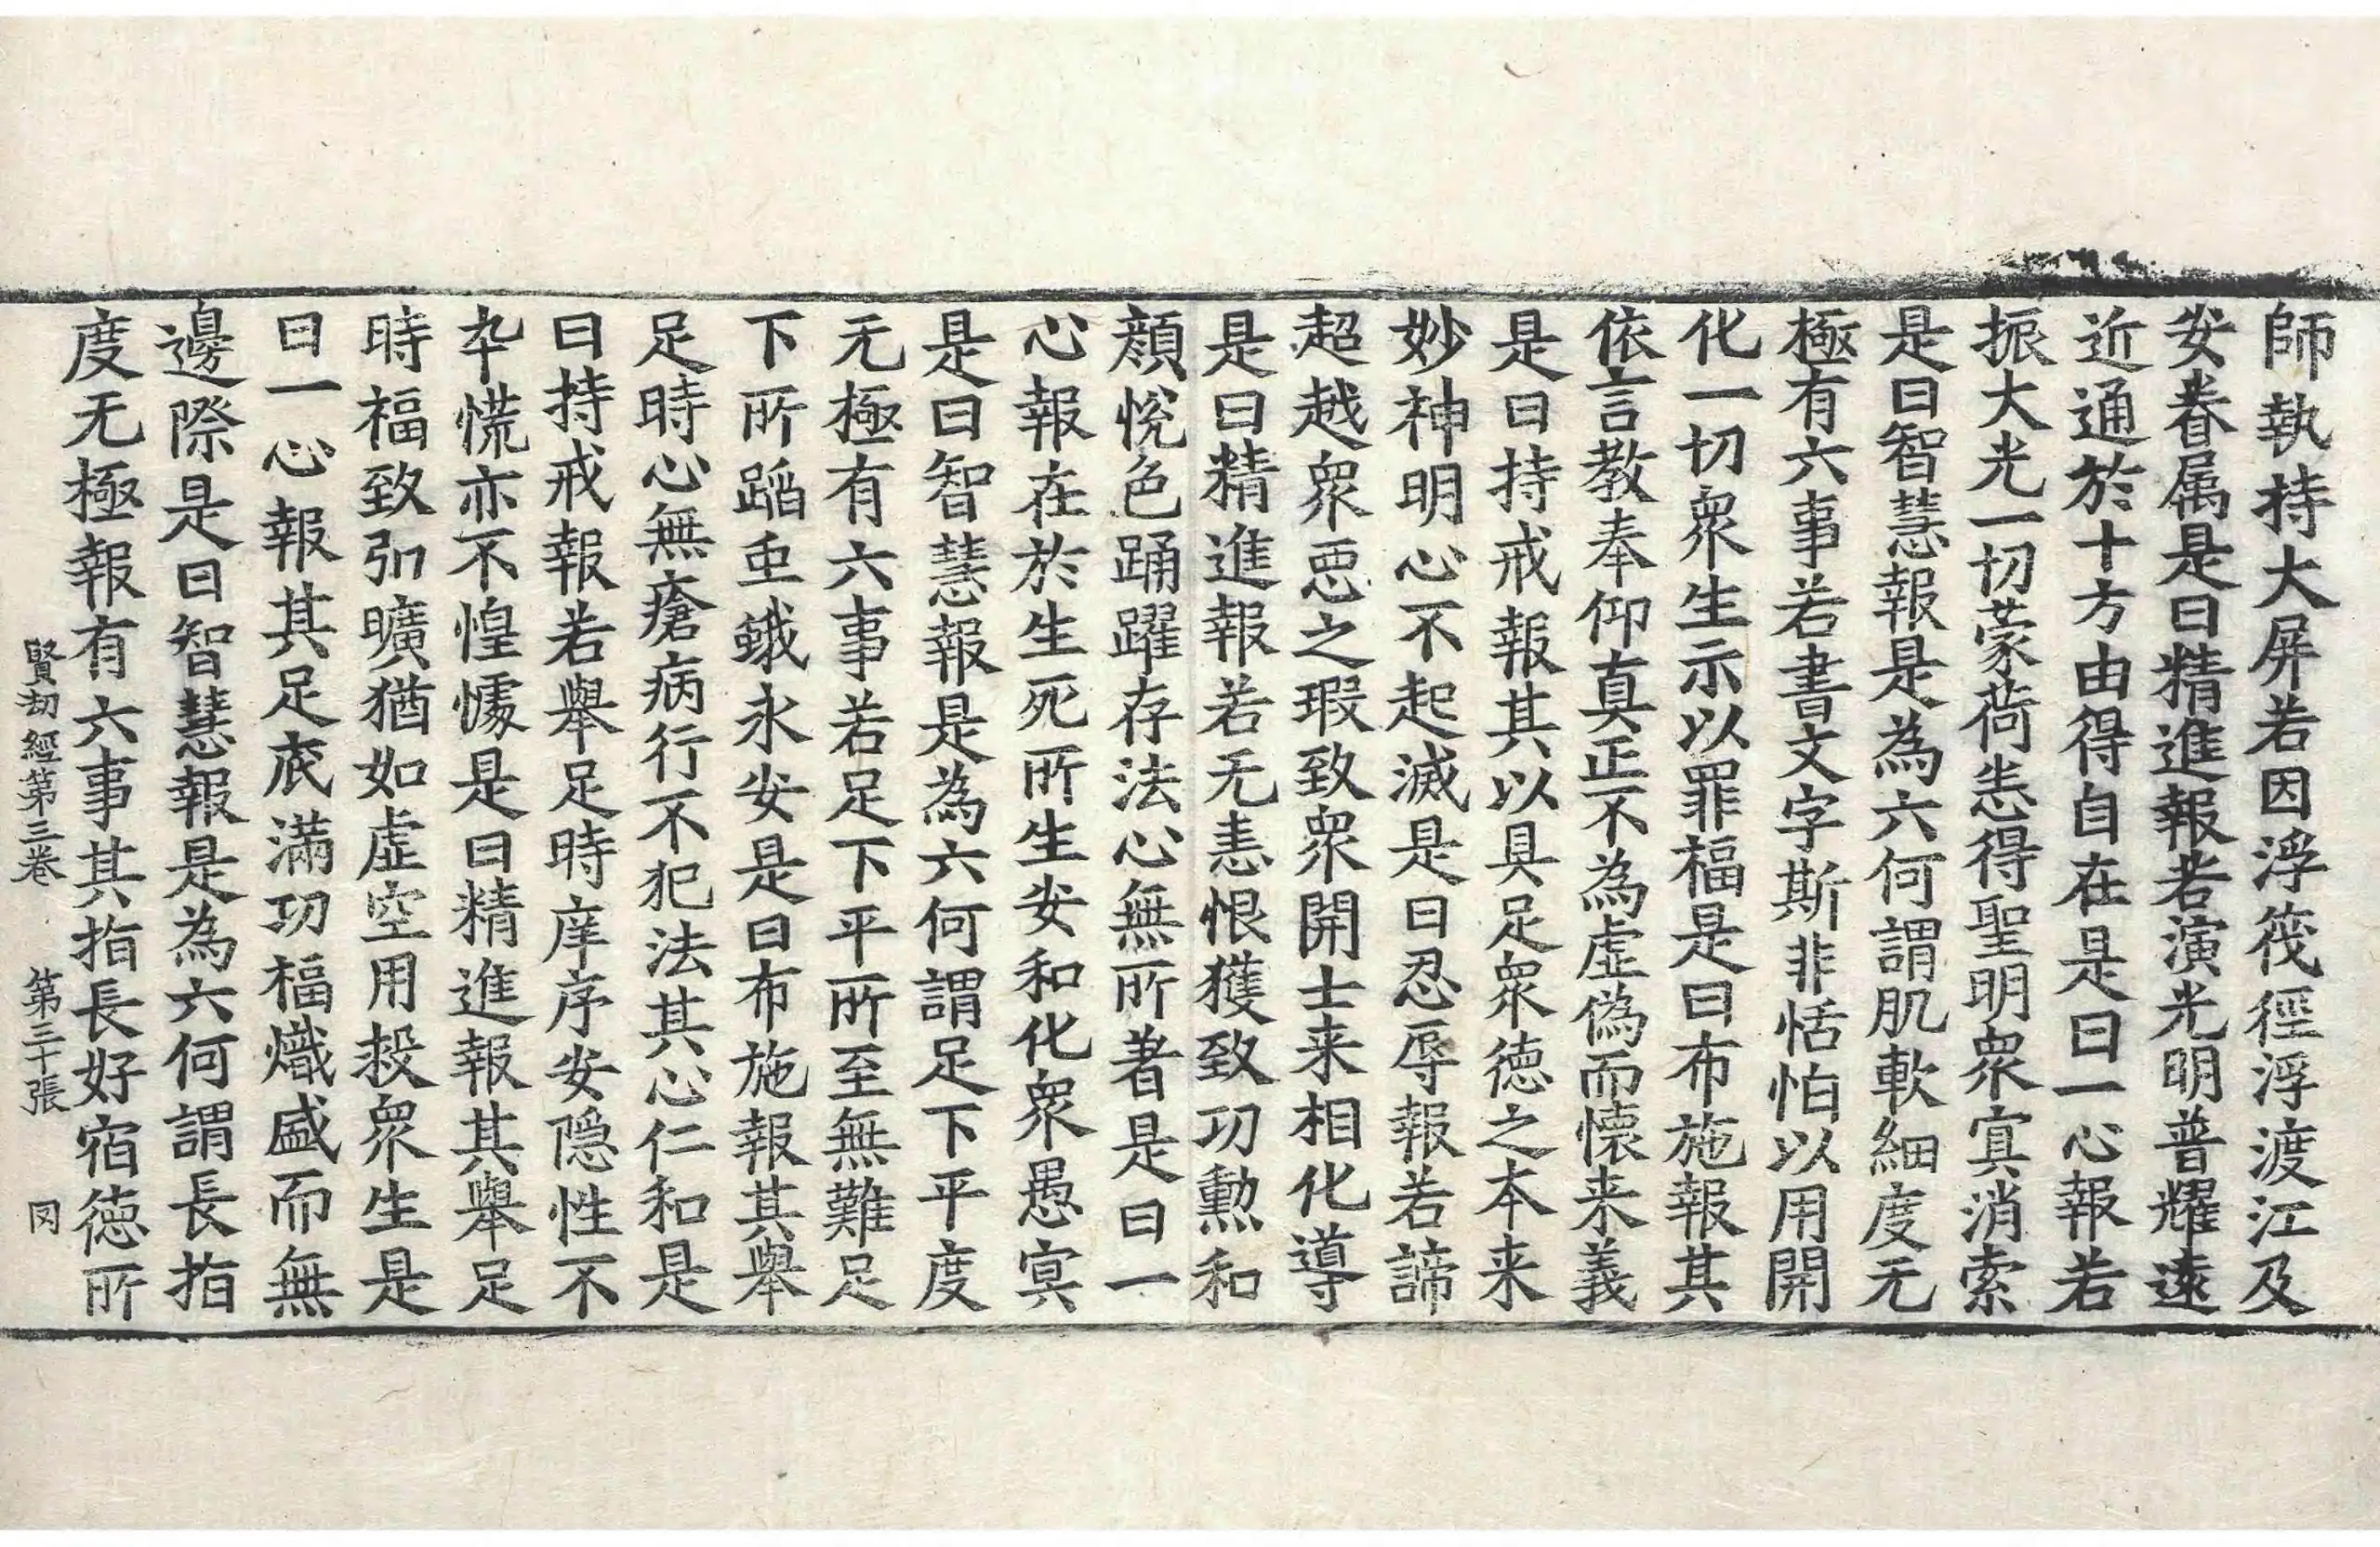 師執持大屏若因浮筏徑浮渡江及
安眷属是曰精進報若演光明普耀遠
近通於十方由得自在是曰一心報若
振大光一切蒙荷恙得聖明衆𡨋消索
是曰智慧報是為六何謂肌軟細度无
極有六事若書文字斯非恬怕以用開
化一切衆生示以罪福是曰布施報其
依言教奉仰真正不為虛偽而懷来義
是曰持戒報其以具足衆德之本来
妙神明心不起滅是曰忍辱報若諦
超越衆惡之瑕致衆開士来相化導
是曰精進報若无恚恨獲致功勳和
顏悅色踊躍存法心無所著是曰一
心報在於生死所生安和化衆愚𡨋
是曰智慧報是為六何謂足下平度
无極有六事若足下平所至無難足
下所蹈虫蛾永安是曰布施報其舉
足時心無瘡病行不犯法其心仁和是
曰持戒報若舉足時庠序安隱性不
卒慌亦不惶懅是曰精進報其舉足
時福致弘曠猶如虛空用投衆生是
曰一心報其足底滿功福熾盛而無
邊際是曰智慧報是為六何謂長指
度无極報有六事其指長好宿德所
賢劫經第三卷 第三十張 罔